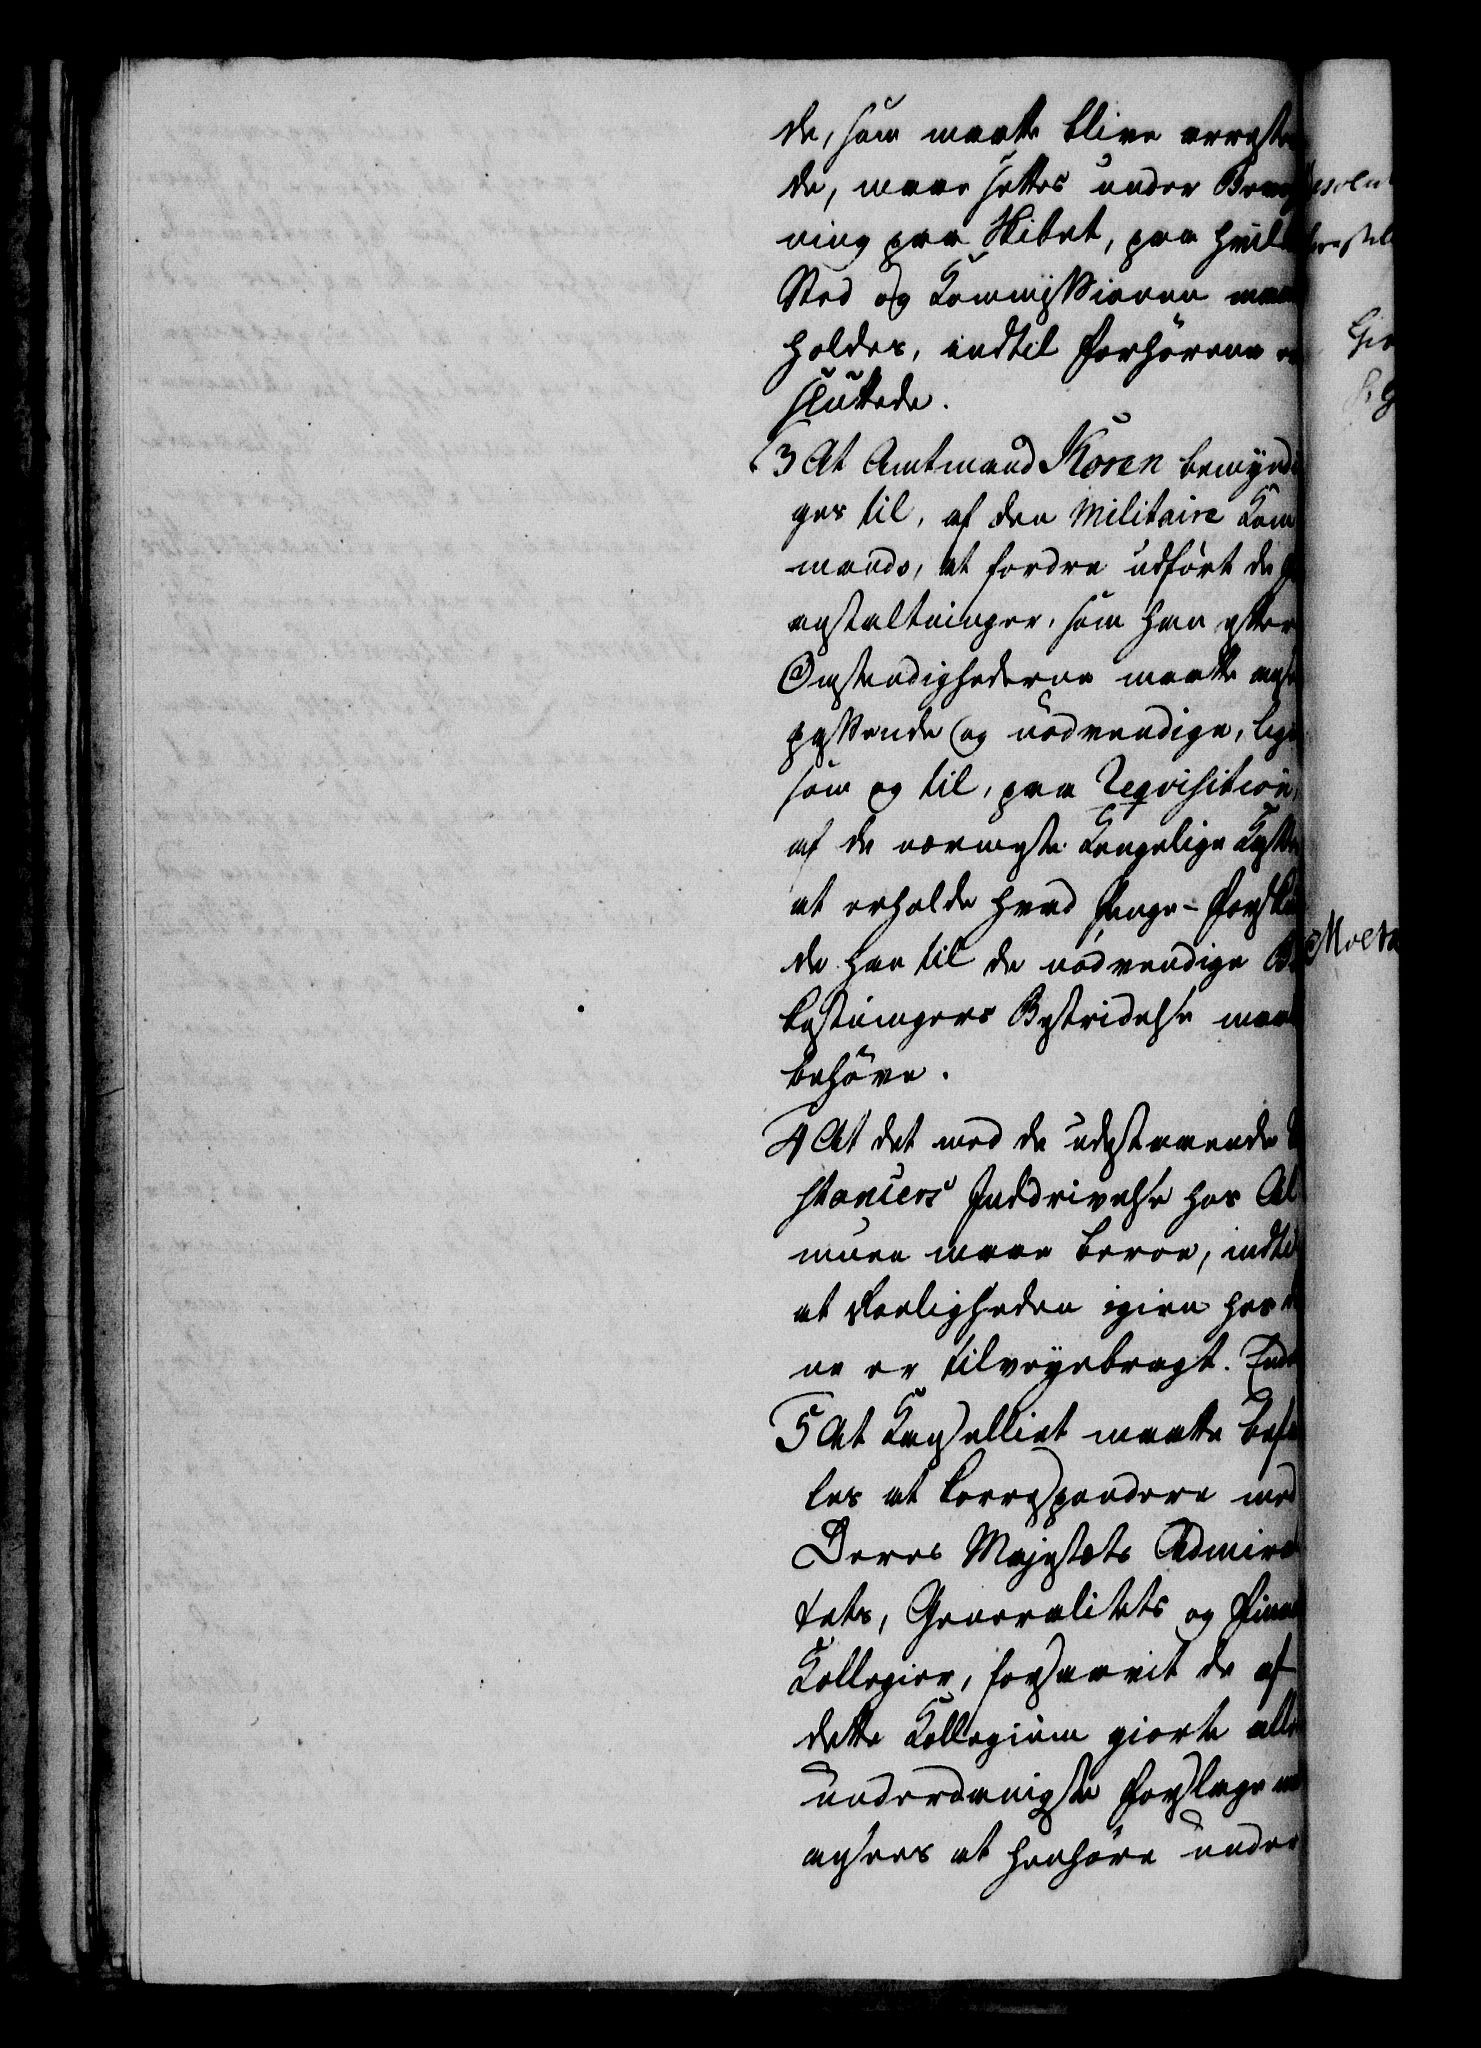 de, som maatte blive arreste
de, maae settes under Bevog
ning paa Skibet, paa hvilk
Sted og Kommissionen maae
holdes, indtil Forhörene er
sluttede.
3 At Amtmand Koren bemyndi
ges til, af den Militaire Kom
mando, at fordre udfört de For
anstaltninger, som han efter
Omstendighederne maatte ansee
passende og nödvendige, lige
som og til, paa Reqvisition,
af de nærmeste Kongelige Kasse
at erholde hvad Penge-Forskud
de han til de nödvendige Be
kostningers Bestridelse maatte
behöve.
4 At det med de udestaaende Re
stancers Inddrivelse hos Al
muen maae beroe, indtil
at Roeligheden igien hos den
ne er tilveyebragt. Ende
5 At Kancelliet maatte befa
les at korrespondere med
Deres Majestets Admirali
tets, Generalitets og Finants
Kollegier, forsaavit de af
dette Kollegium giorte aller
underdanigste Forslage maa
ansees at henhöre under